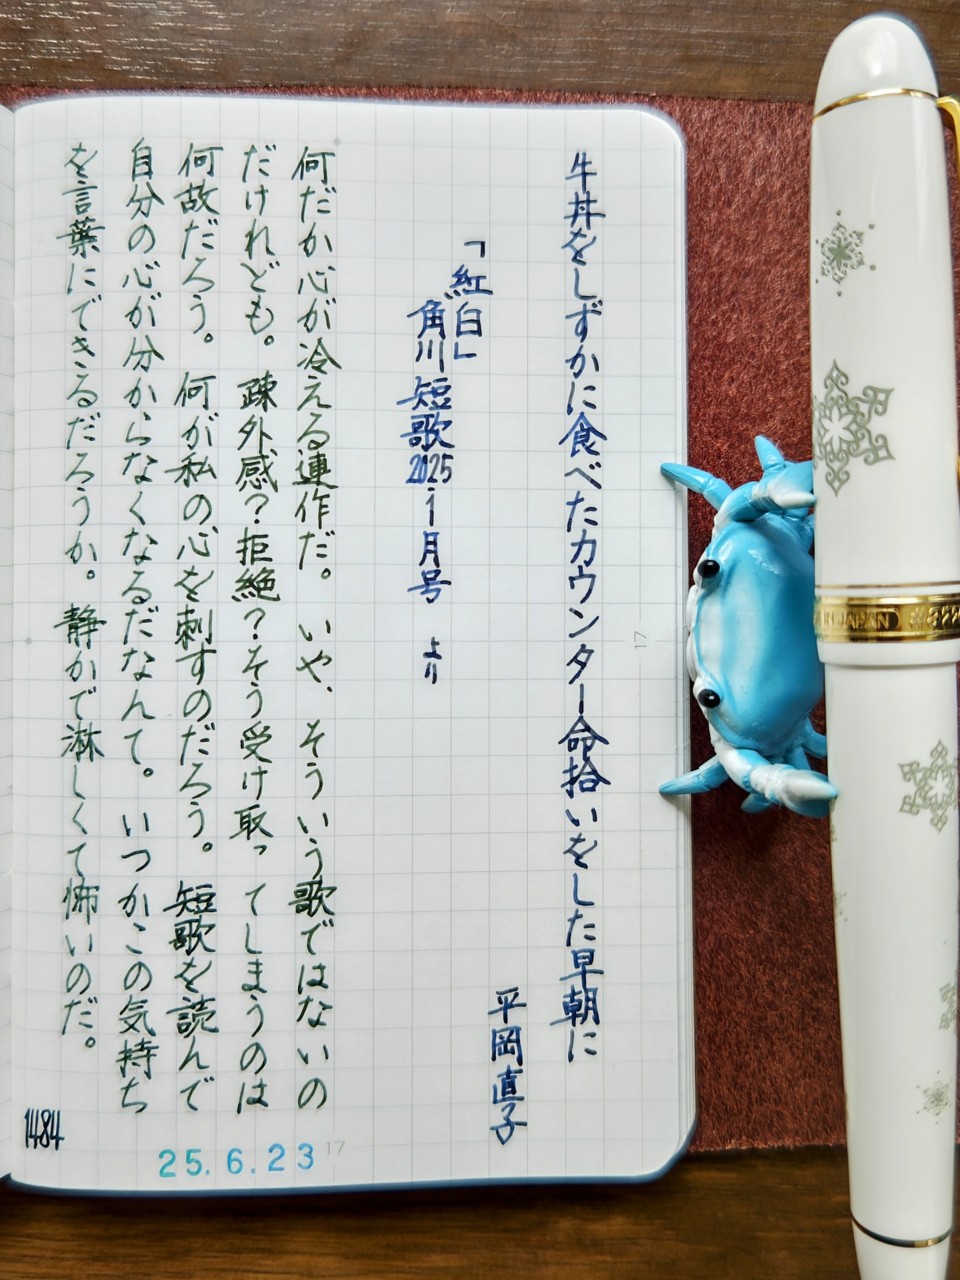 牛丼をしずかに食べたカウンター命拾いをした早朝に
平岡直子
「紅白」
角川短歌2025.1月号 より
何だか心が冷える連作だ。いや、そういう歌ではないの
だけれども。疎外感？拒絶？そう受け取ってしまうのは
何故だろう。何が私の心を刺すのだろう。短歌を読んで
自分の心が分からなくなるだなんて。いつかこの気持ち
を言葉にできるだろうか。静かで淋しくて怖いのだ。
1484
25.6.23
17
17
IN JAPAN